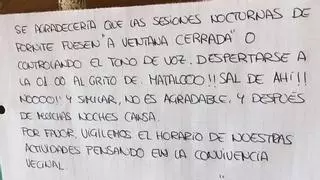 SE AGRADECERÍA QUE LAS SESIONES NOCTURNAS DE
FORNITE FUESEN "A VENTANA CERRADA" O
CONTROLANDO EL TONO DE VOZ. DESPERTARSE A
LA 01:00 AL GRITO DE: MATALOOO!! ¡SAL DE AHÍ!!
NOOOO!! Y SIMILAR, NO ES AGRADABLE. Y DESPUÉS
DE MUCHAS NOCHES CANSA.
POR FAVOR, VIGILEMOS EL HORARIO DE NUESTRAS
ACTIVIDADES PENSANDO EN LA CONVIVENCIA
VECINAL.